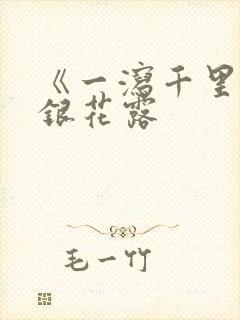 《一泻千里
银花露
毛一竹